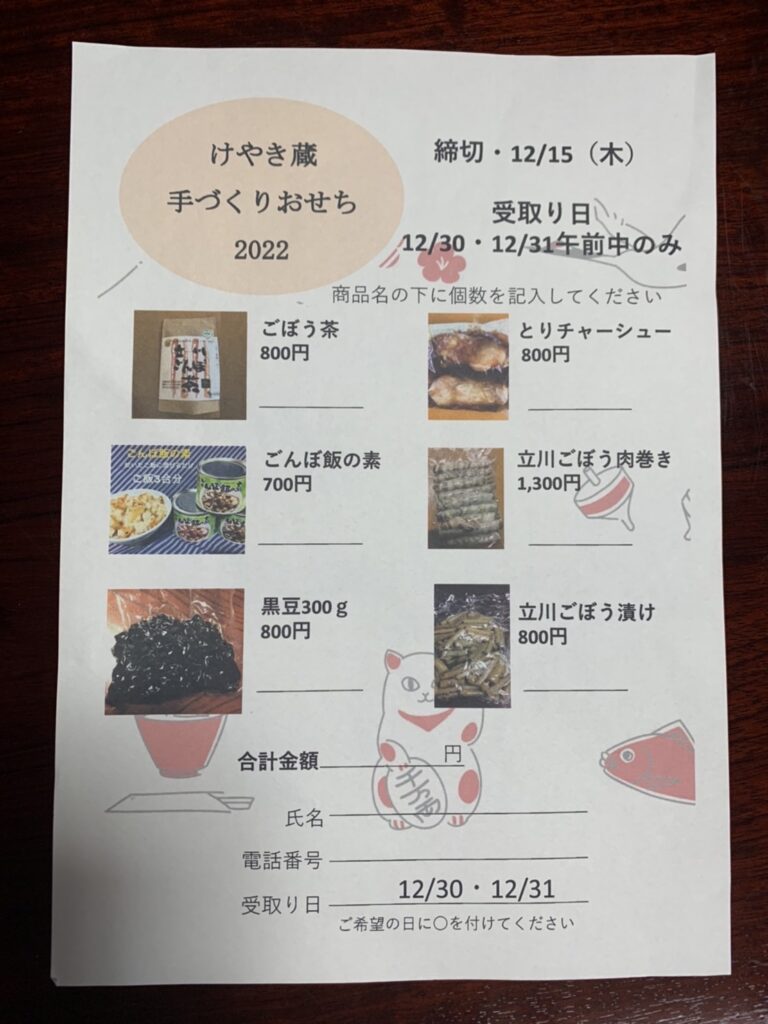 けやき蔵
手づくりおせち
2022
締切・12/15（木）
受取り日
12/30・12/31午前中のみ
商品名の下に個数を記入してください
ごぼう茶
800円
とりチャーシュー
800円
ごんぼ飯の素
700円
ごんぼ飯の素
ご飯3合分
立川ごぼう肉巻き
1,300円
黒豆300ｇ
800円
立川ごぼう漬け
800円
合計金額 円
氏名
電話番号
受取り日 12/30・12/31
ご希望の日に〇を付けてください